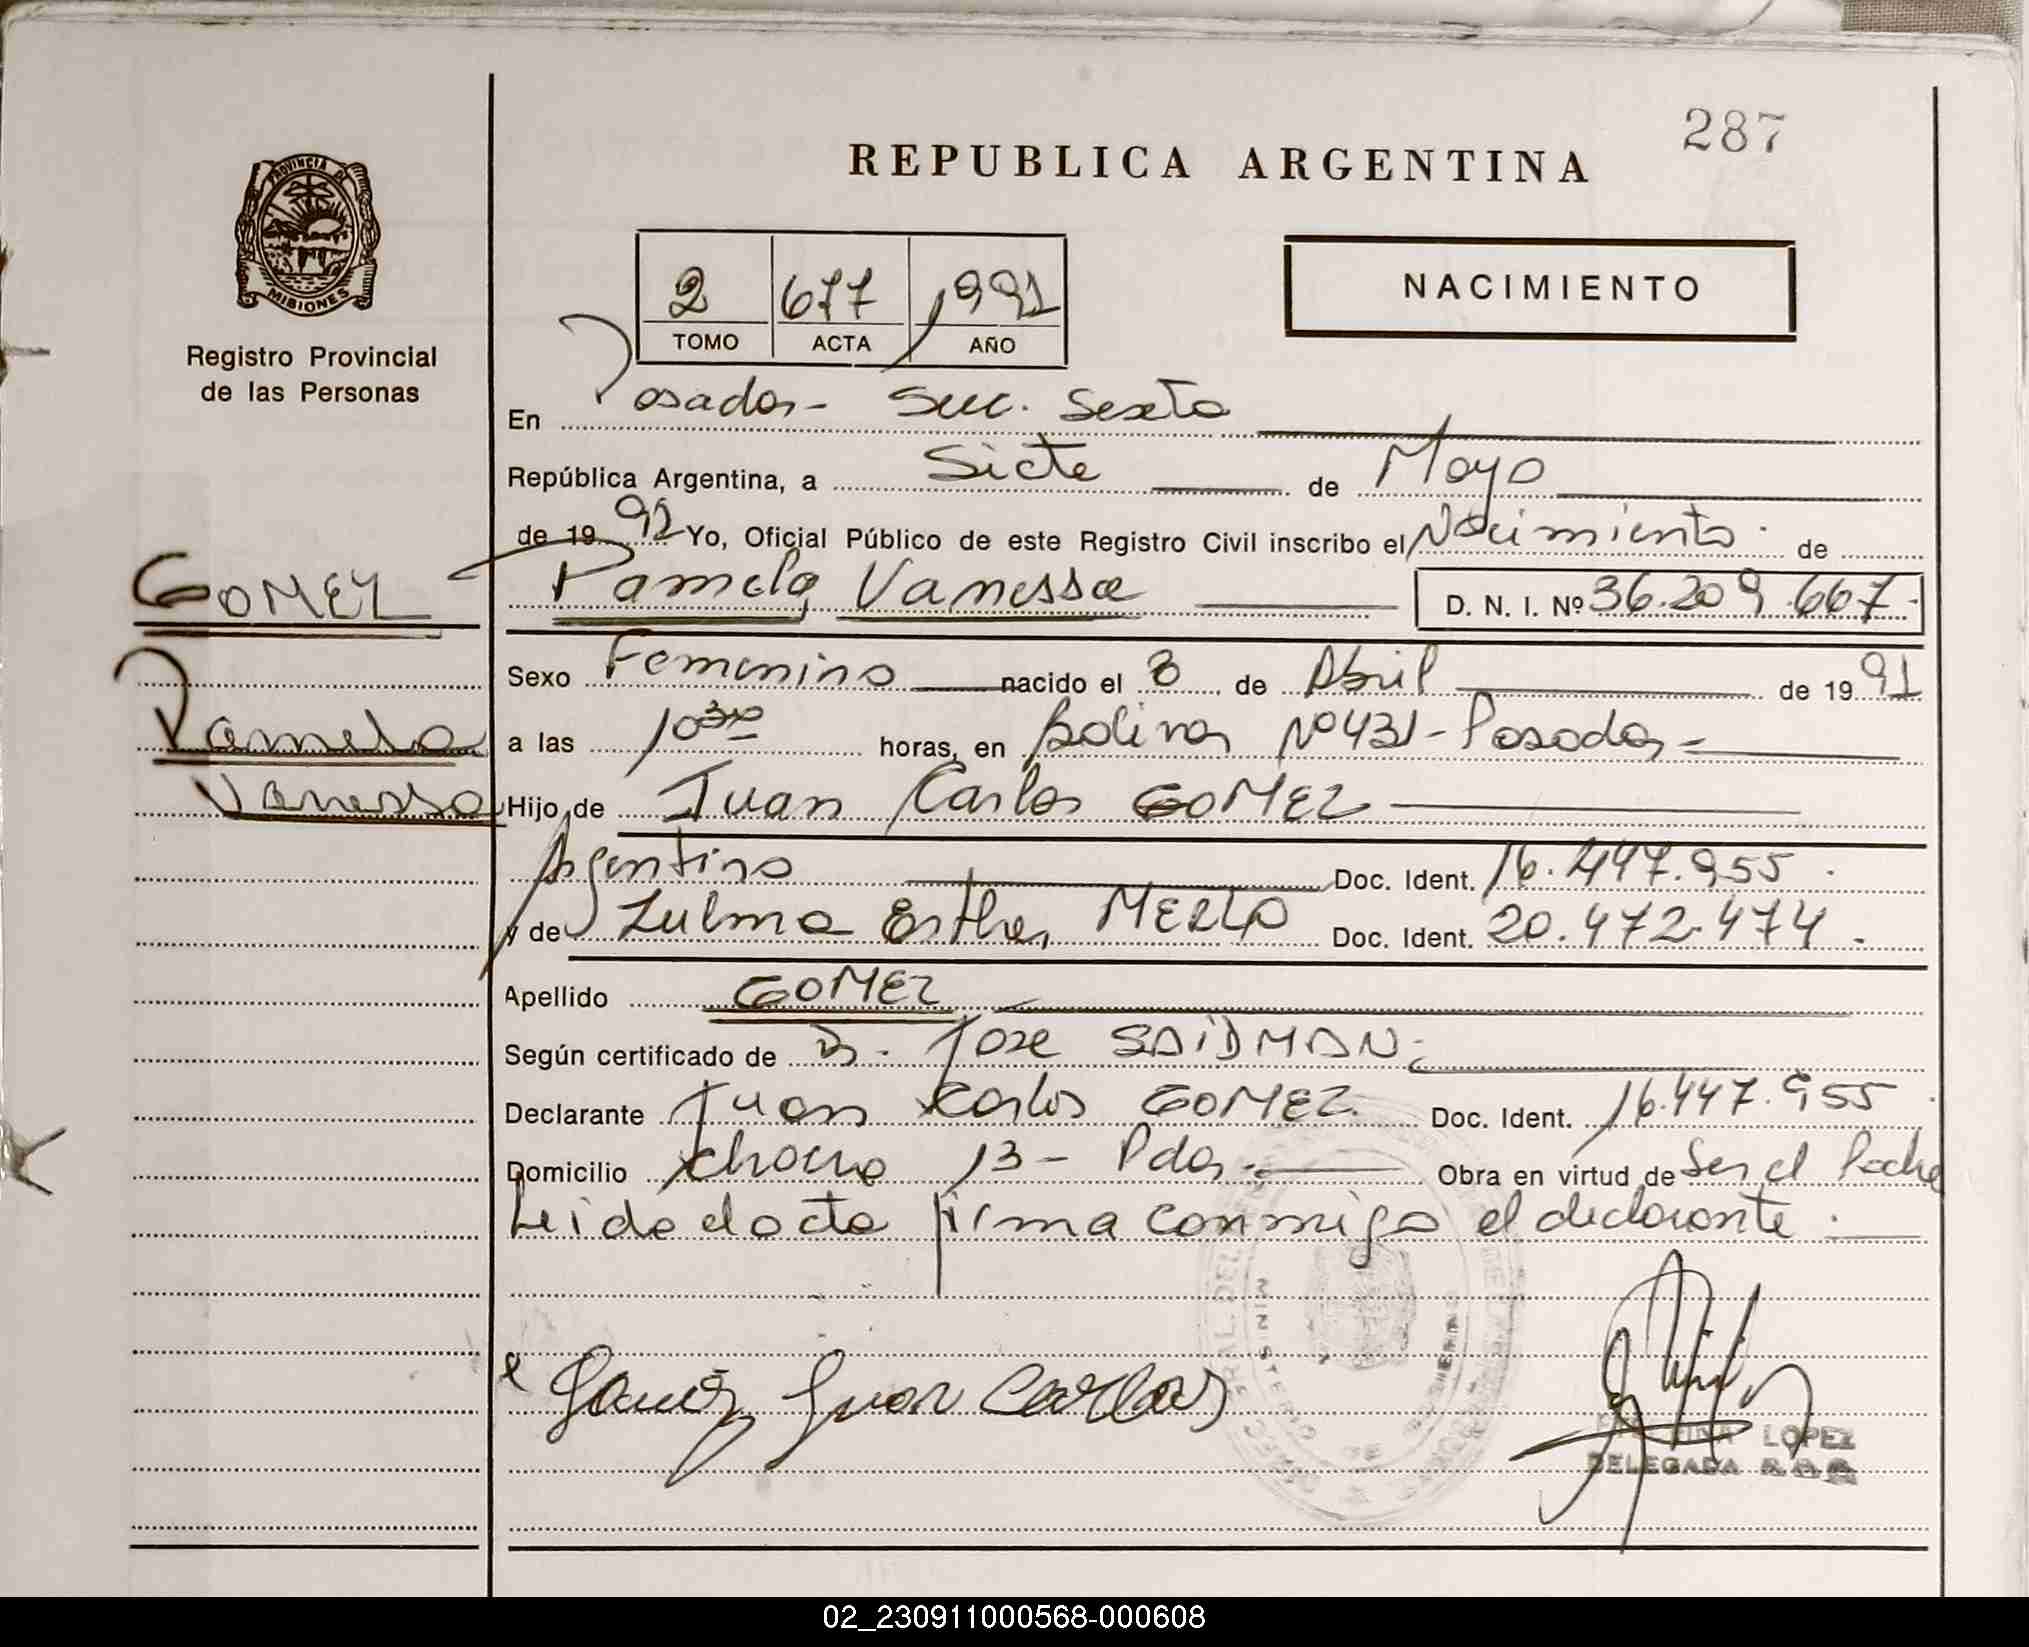 287
REPUBLICA ARGENTINA
PROVINCIA DE
MISIONES
Registro Provincial
de las Personas
2 677 1991
TOMO ACTA AÑO
NACIMIENTO
En Posadas - Secc. Sexta
República Argentina, a Siete de Mayo
de 1991 Yo, Oficial Público de este Registro Civil inscribo el Nacimiento de
GOMEZ
Pamela Vanessa D. N. I. Nº 36.209.667.
Sexo Femenino nacido el 8 de Abril de 1991
Pamela
a las 10 30 horas, en Bolivar Nº 431 - Posadas -
Vanessa
Hijo de Juan Carlos GOMEZ
Argentino Doc. Ident. 16.447.955.
y de Zulma Esther MERLO Doc. Ident. 20.472.474.
Apellido GOMEZ
Según certificado de Dr. Jose SAIDMAN.
Declarante Juan Carlos GOMEZ Doc. Ident. 16.447.955.
Domicilio Chacra 13 - Pdas. Obra en virtud de Ser el Padre
Leida el acta firma conmigo el declarante.
Gomez Juan Carlos
LOPEZ
DELEGADA
02_230911000568-000608